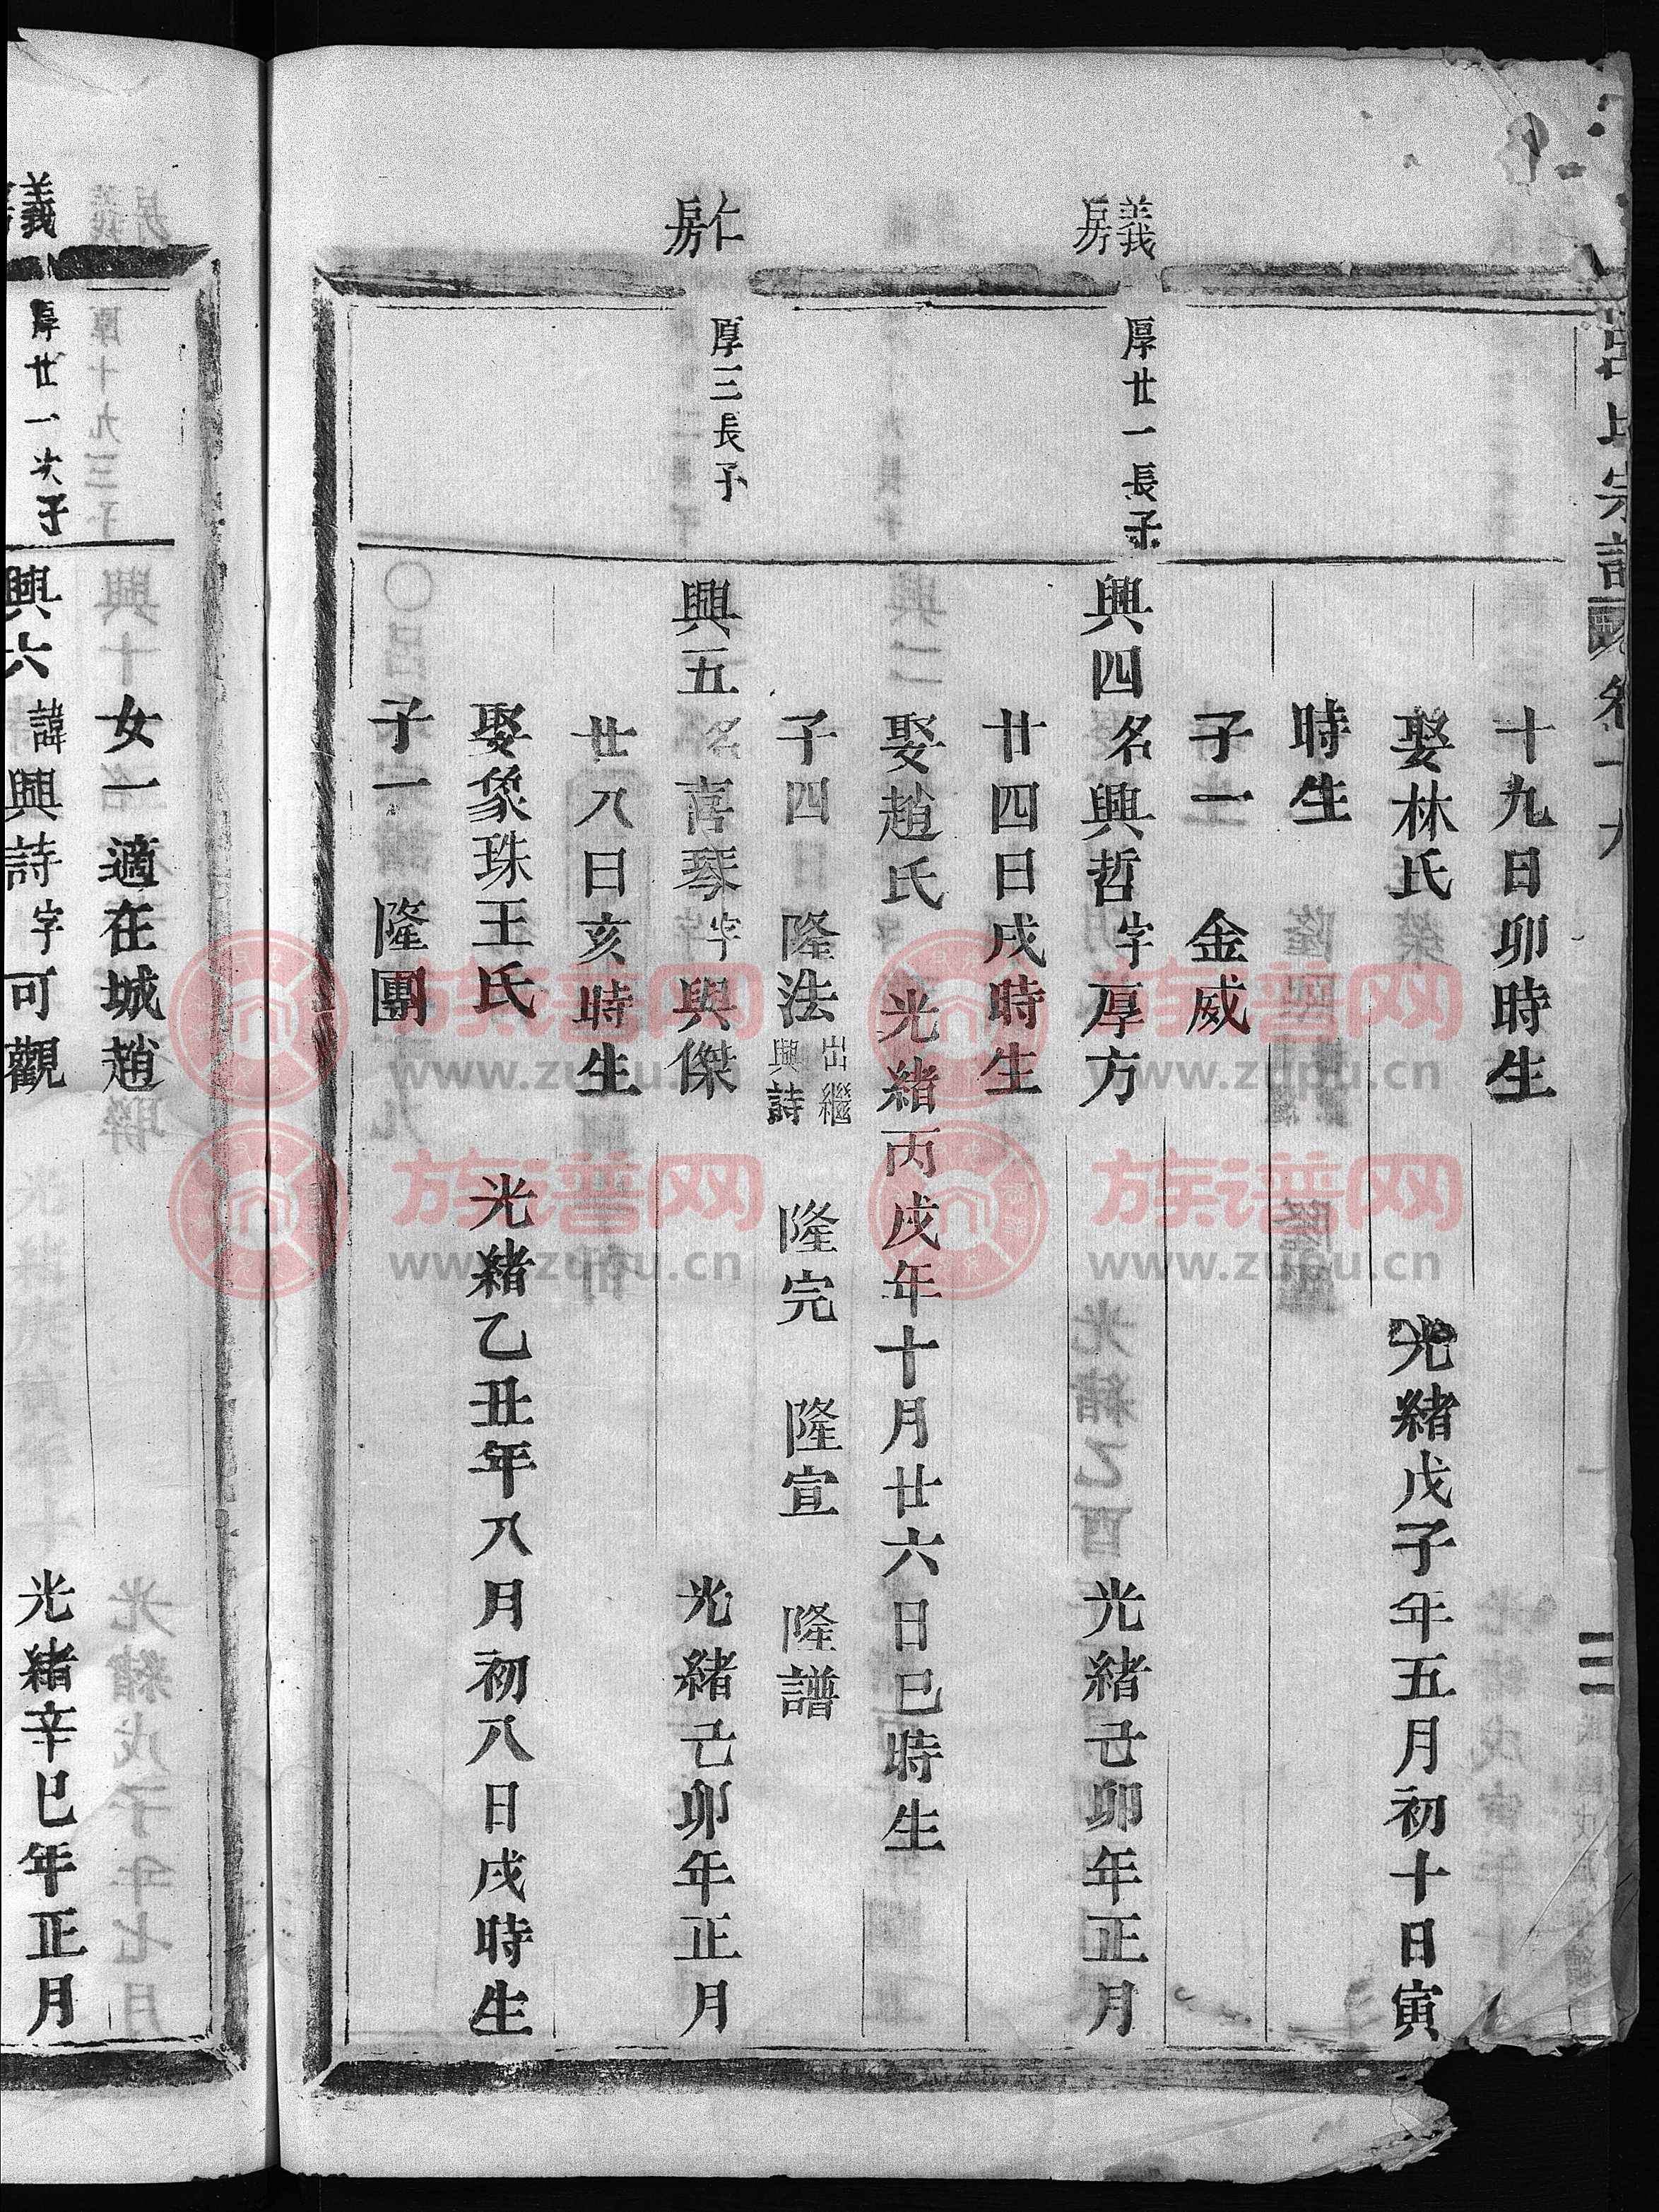 氏宗譜
卷十九
三
十九日卯時生
娶林氏 光緒戊子年五月初十日寅
時生
子一 金威
義房
厚廿一長子
興四 名興哲 字厚方 光緒己卯年正月
廿四日戌時生
娶趙氏 光緒丙戌年十月廿六日巳時生
子四 隆法 出繼興詩 隆完 隆宣 隆譜
仁房
厚三長子
興五 名喜琴 字興傑 光緒己卯年正月
廿八日亥時生
娶象珠王氏 光緒乙丑年八月初八日戌時生
子一 隆團
女一適在城趙
義
厚廿一次子
興六 諱興詩 字可觀 光緒辛巳年正月
族谱网
www.zupu.cn
族谱网
www.zupu.cn
族谱网
www.zupu.cn
族谱网
www.zupu.cn